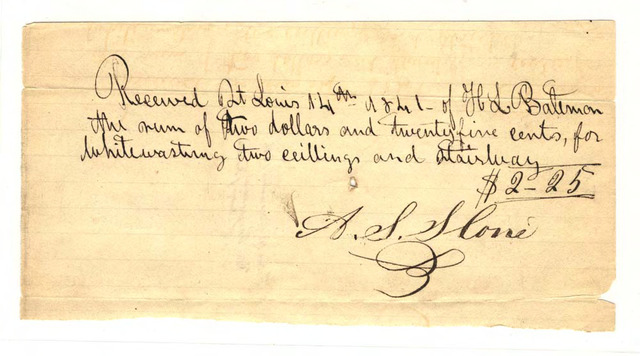 Received St Louis 14th 1841- of H L Bateman
the sum of two dollars and twentyfive cents, for
whitewashing two ceillings and stairway
$2-25
A. S.